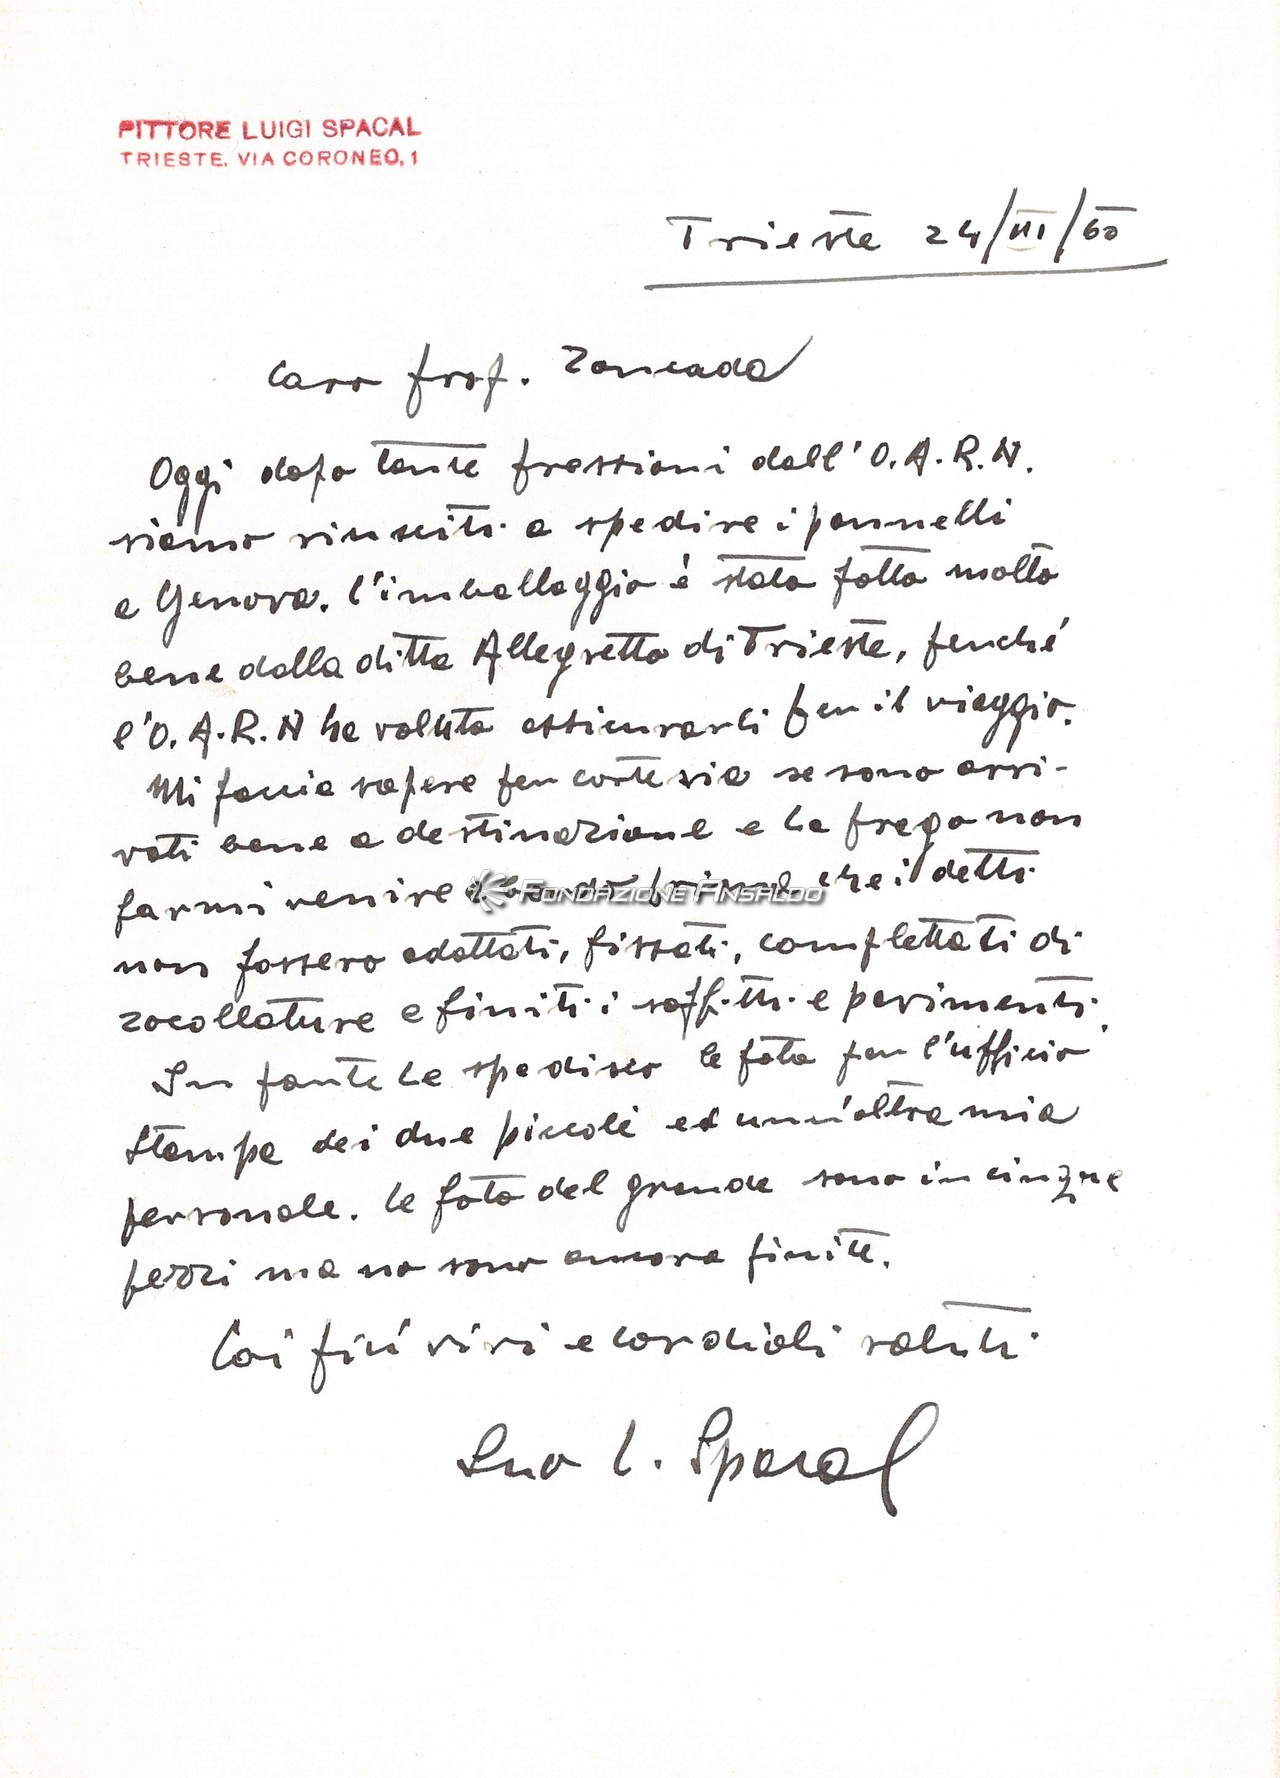 PITTORE LUIGI SPACAL
TRIESTE. VIA CORONEO, 1
Trieste 24/III/60
Caro prof. Zoncada
Oggi dopo tante pressioni dall'O.A.R.N.
siamo riusciti a spedire i pannelli
a Genova. l'imballaggio è stato fatto molto
bene dalla ditta Allegretto di Trieste, perché
l'O.A.R.N ha voluto assicurarli per il viaggio.
Mi faccia sapere per cortesia se sono arri-
vati bene a destinazione e La prego non
farmi venire a bordo prima che i detti
FONDAZIONE ANSALDO
non fossero adattati, fissati, completati di
zocollature e finiti i soffitti e pavimenti.
In parte Le spedisco le foto per l'ufficio
stampa dei due piccoli ed un'altra mia
personale. le foto del grande sono in cinque
pezzi ma no sono ancora finite.
Coi più vivi e cordiali saluti
Suo L. Spacal